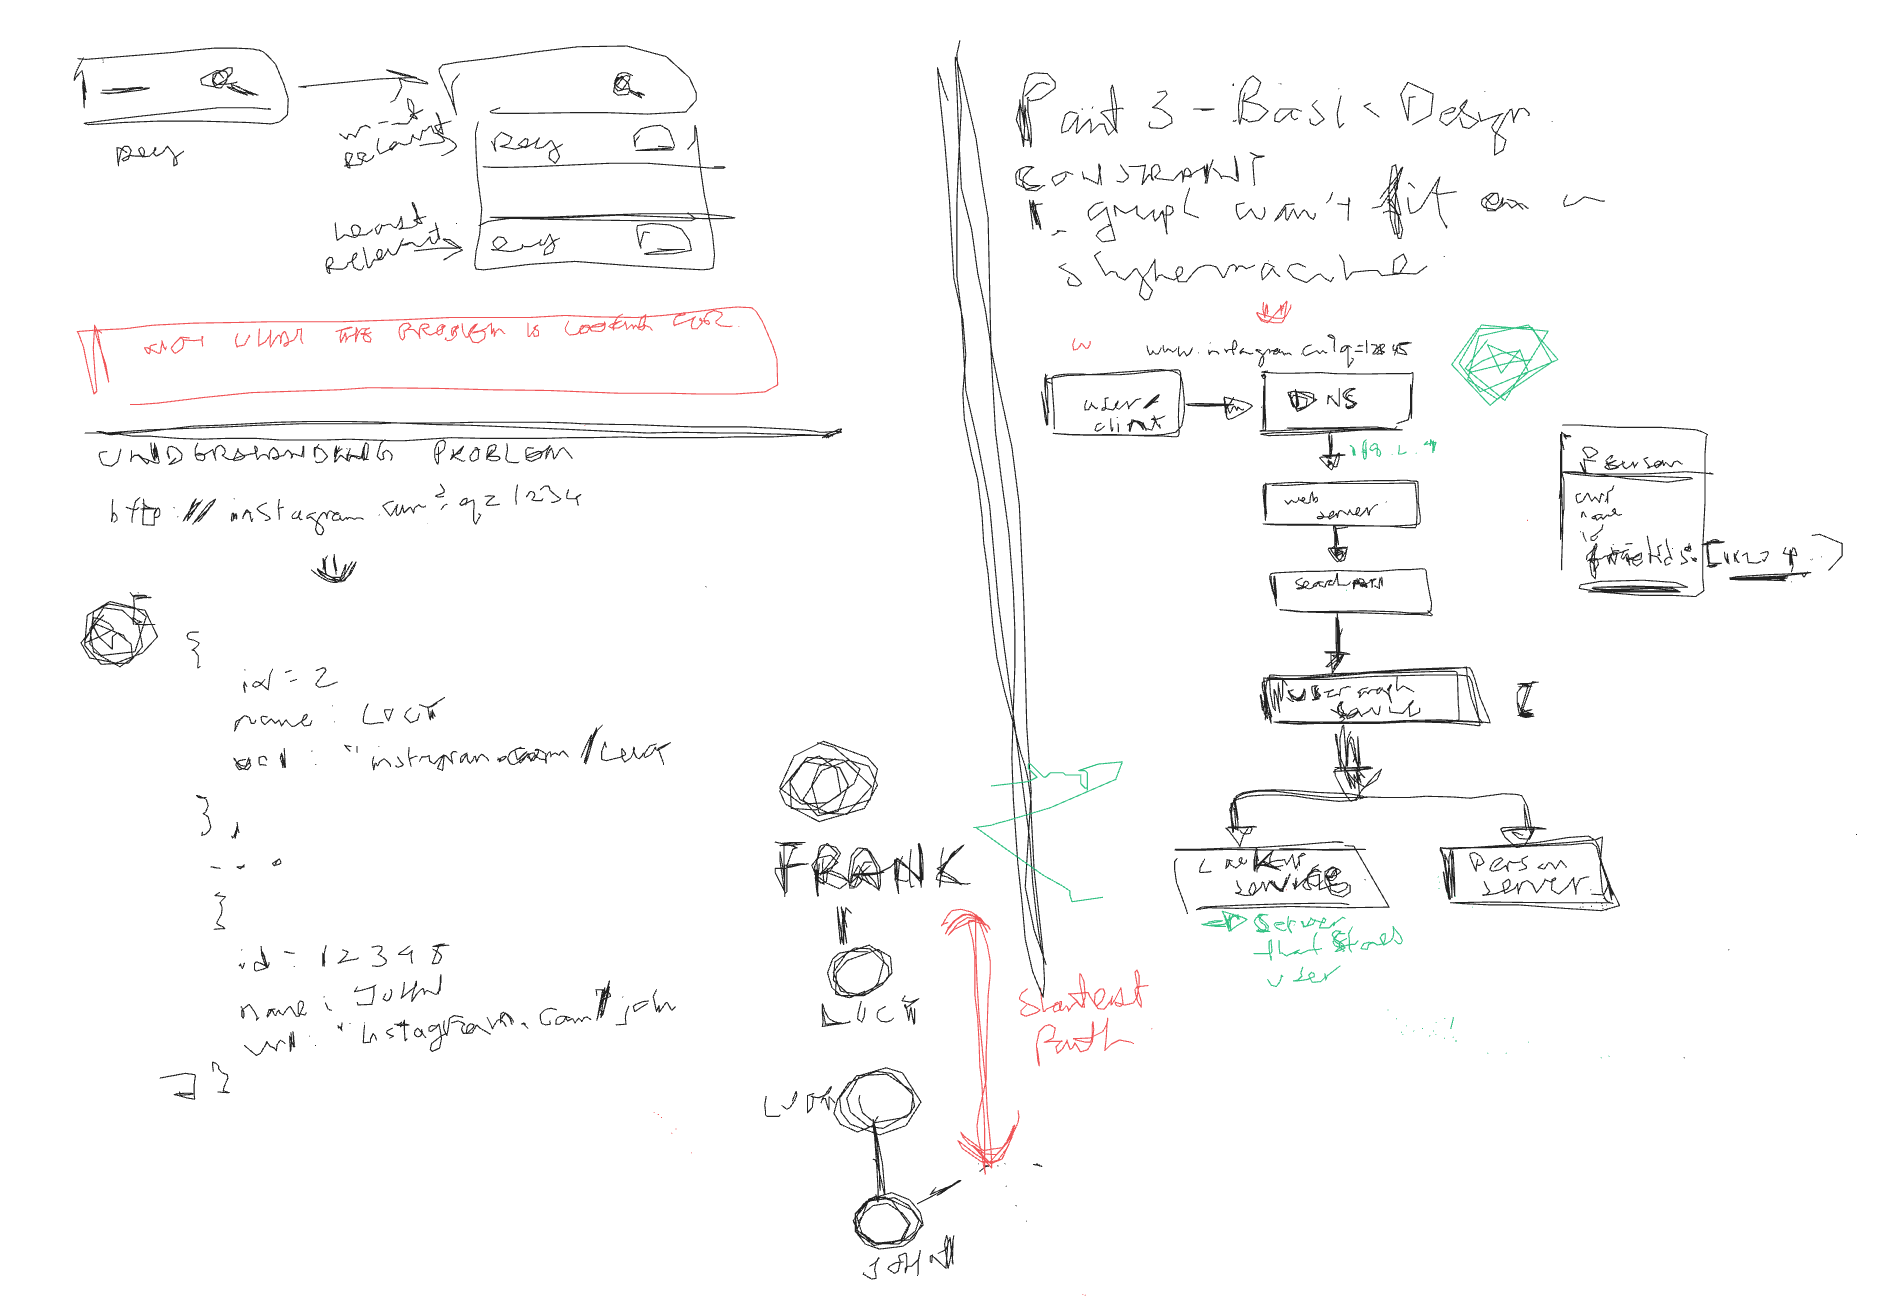 Rey
most
Relevant
Rey
Least
Relevant
Rey
NOT WHAT THE PROBLEM IS LOOKING FOR
UNDERSTANDING PROBLEM
http:// instagram.com?q=1234
[
{
id = 2
name: LUCY
url: "instagram.com/Lucy
},
...
{
id = 12345
name: JOHN
url: "Instagram.com/john
]}
FRANK
LUCY
JOHN
Shortest
Path
Part 3 - Basic Design
CONSTRAINT
1. graph won't fit on a
single machine
www.instagram.com?q=12345
user/
client
DNS
web
server
search API
User graph
service
Lookup
services
Person
server
Server
that stores
user
Person
name
id
friendIds: